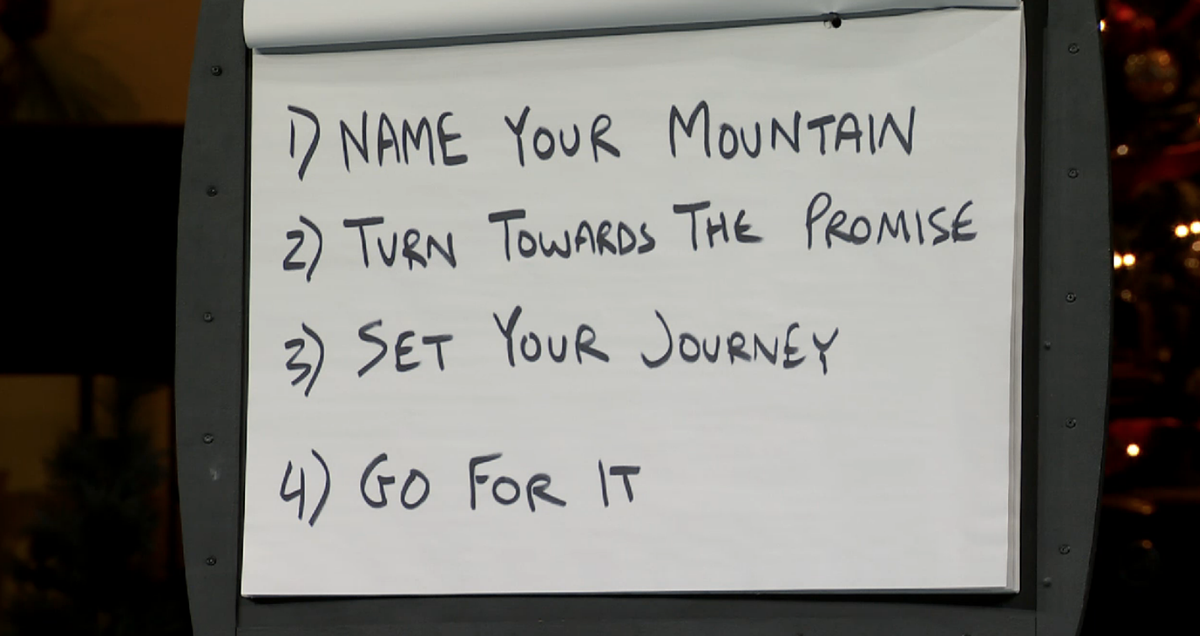 1) NAME YOUR MOUNTAIN
2) TURN TOWARDS THE PROMISE
3) SET YOUR JOURNEY
4) GO FOR IT